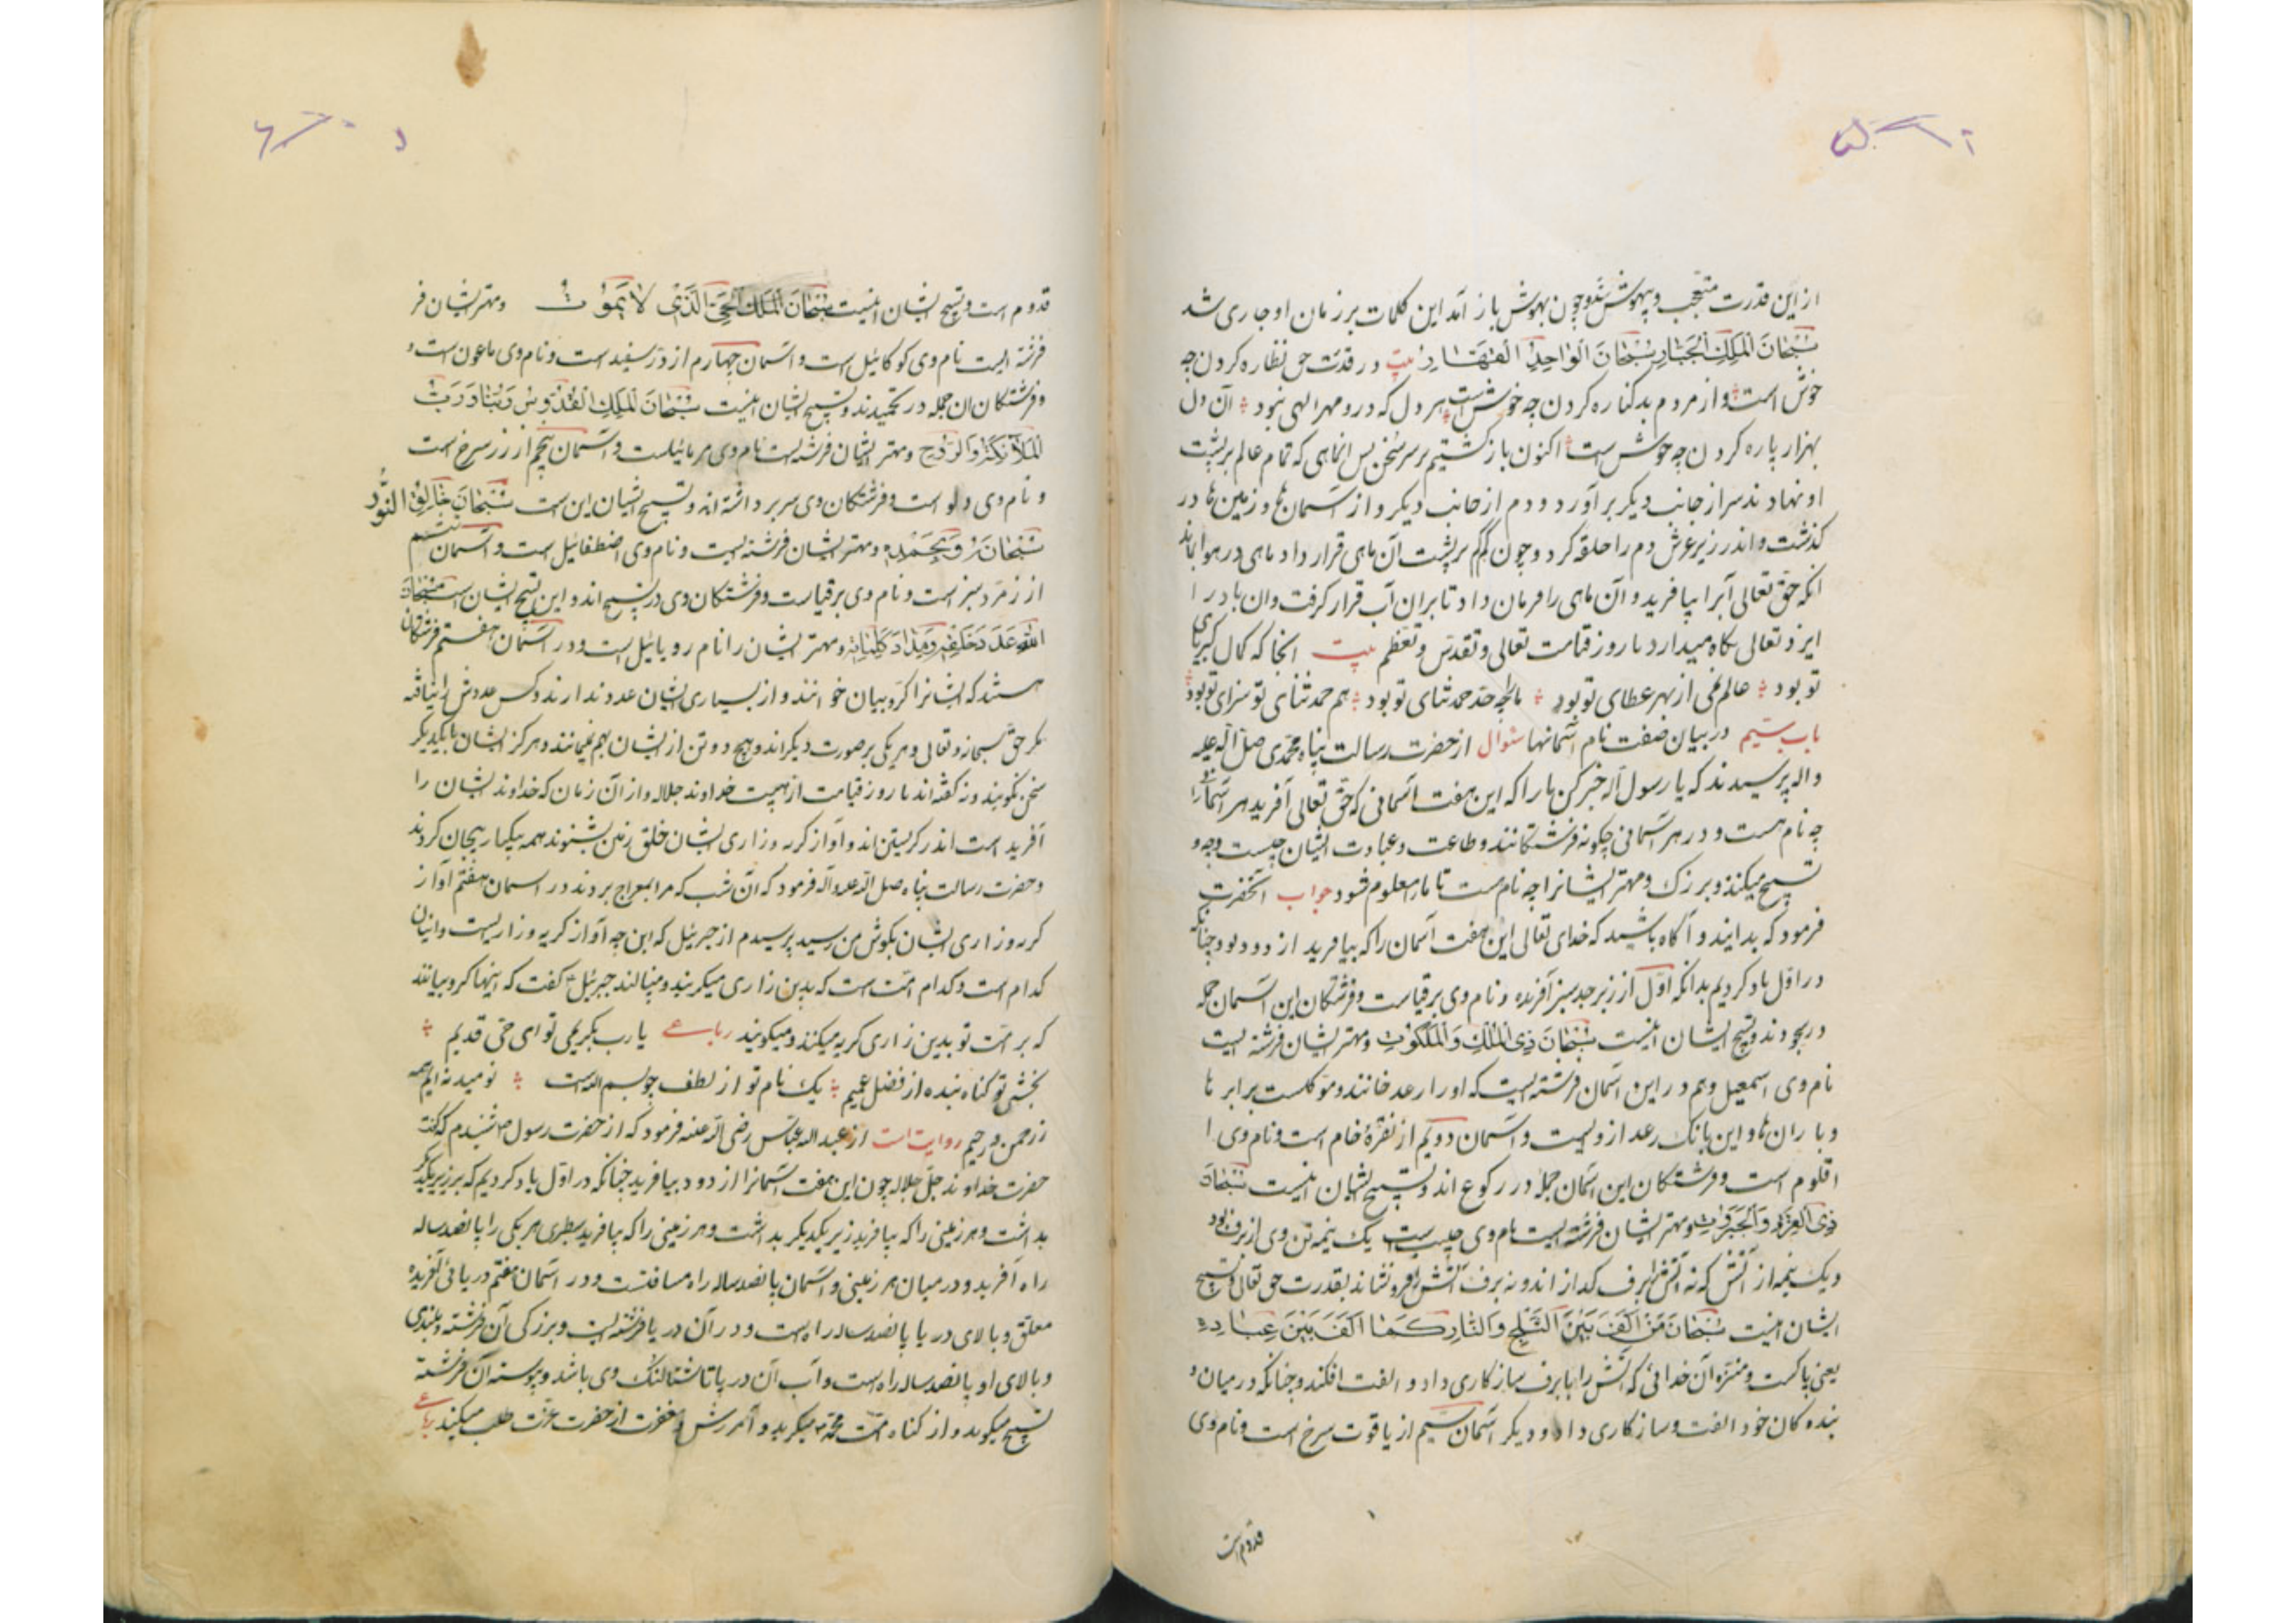 از این قدرت متعجب و بیهوش شد و چون بهوش باز آمد این کلمات بر زبان او جاری شد
سُبْحَانَ الْمَلِكِ الْجَبَّارِ سُبْحَانَ الْوَاحِدِ الْقَهَّارِ بیت در قدرت حق نظاره کردن چه
خوش است و از مردم بد کناره کردن چه خوش است هر دل که درو مهر الهی نبود آن دل
بهزار پاره کردن چه خوش است اکنون باز گشتیم بر سر سخن پس ان ماهی که تمام عالم بر پشت
او نهادند سر از جانب دیکر بر آورد و دم از جانب دیکر و از آسمان ها و زمین ها در
کذشت و اندر زیر عرش دم را حلقه کرد و چون بر پشت آن ماهی قرار داد ماهی در هوا بماند
انکه حق تعالی آبرا بیافرید و آن ماهی را فرمان داد تا بران آب قرار کرفت وان باد را
ایزد تعالی نکاه میدارد تا روز قیامت تعالی و تقدس و تعظم بیت انجا که کمال کبریای
تو بود عالم نمی از بهر عطای تو بود ما را چه حد حمد ثنای تو بود هم حمد ثنای تو سزای تو بود
باب سیم در بیان صفت نام آسمانها سئوال از حضرت رسالت پناه محمدی صلی الله علیه
و اله پرسیدند که یا رسول اله خبر کن ما را که این هفت آسمانی که حق تعالی آفرید هر آسمانرا
چه نام است و در هر آسمانی چکونه فرشتکانند و طاعت و عبادت ایشان چیست و چه
تسبیح میکنند و بزرک و مهتر ایشانرا چه نام است تا ما را معلوم شود جواب آنحضرت
فرمود که بدانید و آکاه باشید که خدای تعالی این هفت آسمان را که بیافرید از دود بود چنانکه
در اول یاد کردیم بدانکه اول از زبرجد سبز آفریده و نام وی برقیاست و فرشتکان این آسمان جمله
در سجودند و تسبیح ایشان اینست سُبْحَانَ ذِی الْمُلْكِ وَالْمَلَكُوْتِ و مهتر ایشان فرشته ایست
نام وی اسمعیل وهم در این آسمان فرشته ایست که او را رعد خوانند و موکلست بر ابر ها
و باران ها و این بانک رعد از ویست و آسمان دویم از نقرهٔ خام است و نام وی ا
اقلوم است و فرشتکان این آسمان جمله در رکوع اند و تسبیح ایشان اینست سُبْحَانَ
ذِی الْعِزَّةِ وَالْجَبَرُوْتِ و مهتر ایشان فرشته ایست نام وی حبیب است یک نیمه تن وی از برف بود
و یک نیمه از آتش که نه آتش برف کدازاند و نه برف آتش را فرو نشاند بقدرت حق تعالی و تسبیح
ایشان اینست سُبْحَانَ مَنْ اَلَّفَ بَیْنَ الثَّلْجِ وَالنَّارِ كَمَا اَلَّفَ بَیْنَ عِبَادِهِ
یعنی پاکست و منزه آن خدائی که آتش را با برف سازکاری داد و الفت افکند و چنانکه در میان و
بنده کان خود الفت و سازکاری داد و دیکر آسمان سیم از یاقوت سرخ است و نام وی
قدوم است
قدوم است و تسبیح ایشان اینست سُبْحَانَ الْمَلِكِ الْحَیِّ الَّذِی لَا یَمُوْتُ و مهتر ایشان فر
فرشته ایست نام وی کوکائیل است و آسمان چهارم از در سفید است و نام وی ماعون است و
و فرشتکان ان جمله در تحمیدند و تسبیح ایشان اینست سُبْحَانَ الْمَلِكِ الْقُدُّوْسِ رَبُّنَا وَ رَبُّ
الْمَلَآئِكَةِ وَالرُّوْحِ و مهتر ایشان فرشته ایست نام وی مرمائیلست و آسمان پنجم از زر سرخ است
و نام وی دلو است و فرشتکان وی سر بر داشته اند و تسبیح ایشان این است سُبْحَانَ خَالِقِ النُّوْرِ
سُبْحَانَهُ وَ بِحَمْدِهِ و مهتر ایشان فرشته ایست و نام وی اصطفائیل است و آسمان ششم
از زمرد سبز است و نام وی برقیا است و فرشتکان وی در تسبیح اند و این تسبیح ایشان است سُبْحَانَ
اللّٰهِ عَدَدَ خَلْقِهِ وَمِدَادَ كَلِمَاتِهِ و مهتر ایشان را نام رویائیل است و در آسمان هفتم فرشتکان
هستند که ایشانرا کروبیان خوانند و از بسیاری ایشان عدد ندارند و کس عددش را نیافته
مکر حق سبحانه و تعالی و هر یکی بر صورت دیکر اند و هیچ دو تن از ایشان بهم نمیمانند و هرکز ایشان با یکدیکر
سخن نکویند و نه کفته اند تا روز قیامت از هیبت خداوند جلاله و از آن زمان که خداوند ایشان را
آفریده است اندر کریستن اند و آواز کریه و زاری ایشان خلق زمین بشنوند همه بیکبار بیجان کردند
و حضرت رسالت پناه صلی الله علیه و آله فرمود که آن شب که مرا بمعراج بردند در اسمان هفتم آواز
کریه و زاری ایشان بکوش من رسید پرسیدم از جبرئیل که این چه آواز کریه و زاریست و اینان
کدام است و کدام امت است که بدین زاری میکریند و مینالند جبرئیل کفت که اینها کروبیانند
که بر امت تو بدین زاری کریه میکنند و میکویند رباعی یا رب بکریمی تو ای حی قدیم
بخش تو کناه بنده از فضل عمیم یک نام تو از لطف چو بسم الله است نومید نه ایم همه
ز رحمن و رحیم روایت است از عبد اله عباس رضی اله عنه فرمود که از حضرت رسول ص شنیدم که کفت
حضرت خداوند جل جلاله چون این هفت آسمانرا از دود بیافرید چنانکه در اول یاد کردیم که بر زبر یکدیکر
بداشت و هر زمینی را که بیافرید زیر یکدیکر بداشت و هر زمینی را که بیافرید سطبری هر یکی را پانصد ساله
راه آفرید و در میان هر زمینی و آسمان پانصد ساله راه مسافتست و در آسمان هفتم دریائی آفریده
معلق و بالای دریا پانصد ساله راه است و در آن دریا فرشته ایست و بزرکی آن فرشته و بلندی
و بالای او پانصد ساله راه است و آب آن دریا تا شتالنک وی باشد و پیوسته آن فرشته
تسبیح میکوید و از کناه امت محمد میکرید و آمرزش و مغفرت از حضرت عزت طلب میکند رباعی